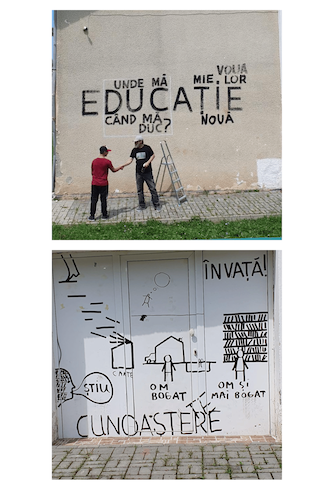 VOUA
UNDE MĂ MIE LOR
EDUCAȚIE
CÂND MĂ NOUĂ
DUC?
ÎNVAȚĂ!
CARTE
ȘTIU
OM BOGAT
OM ȘI MAI BOGAT
CUNOAȘTERE